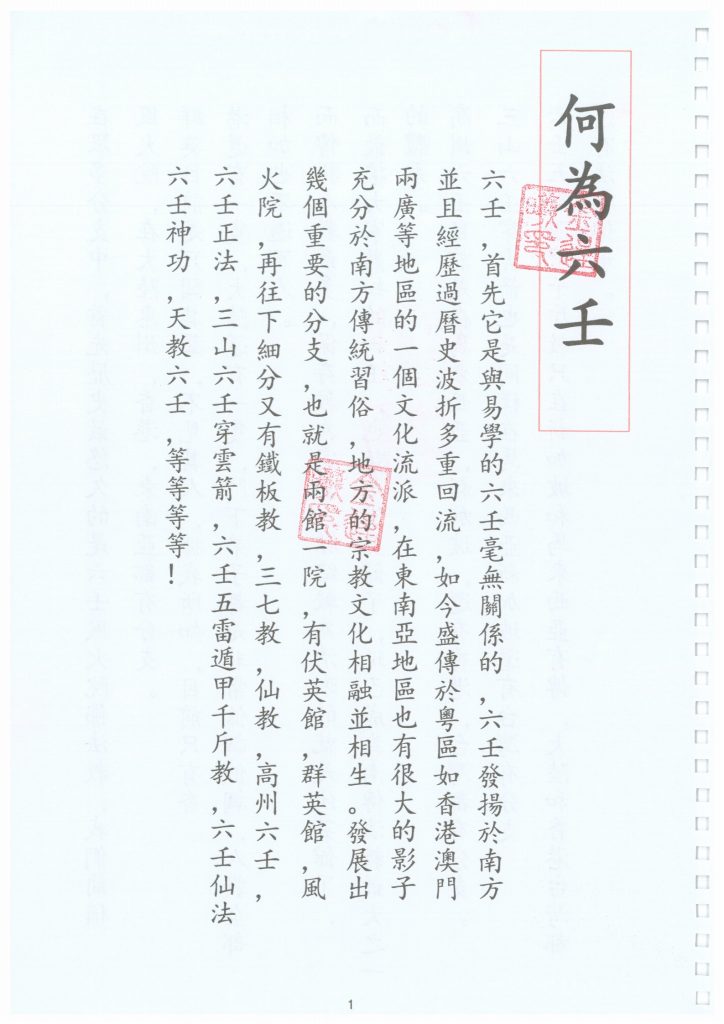 何為六壬
六壬,首先它是與易學的六壬毫無關係的,六壬發揚於南方
並且經歷過曆史波折多重回流,如今盛傳於粵區如香港澳門
兩廣等地區的一個文化流派,在東南亞地區也有很大的影子
充分於南方傳統習俗,地方的宗教文化相融並相生。發展出
幾個重要的分支,也就是兩館一院,有伏英館,群英館,風
火院,再往下細分又有鐵板教,三七教,仙教,高州六壬,
六壬正法,三山六壬穿雲箭,六壬五雷遁甲千斤教,六壬仙法
六壬神功,天教六壬,等等等等!
1